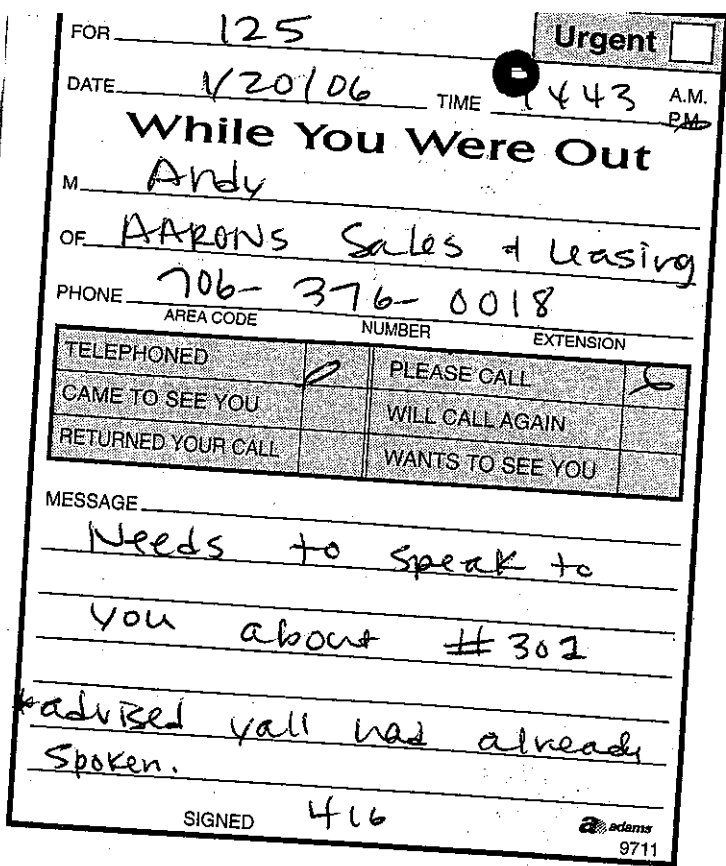 FOR 125 Urgent
DATE 1/20/06 TIME 443 A.M.
P.M.
While You Were Out
M Andy
OF AARONS Sales & Leasing
PHONE 706-376-0018
AREA CODE NUMBER EXTENSION
TELEPHONED PLEASE CALL
CAME TO SEE YOU WILL CALL AGAIN
RETURNED YOUR CALL WANTS TO SEE YOU
MESSAGE
Needs to speak to
you about #301
*advised yall had already
Spoken.
SIGNED 416 adams
9711